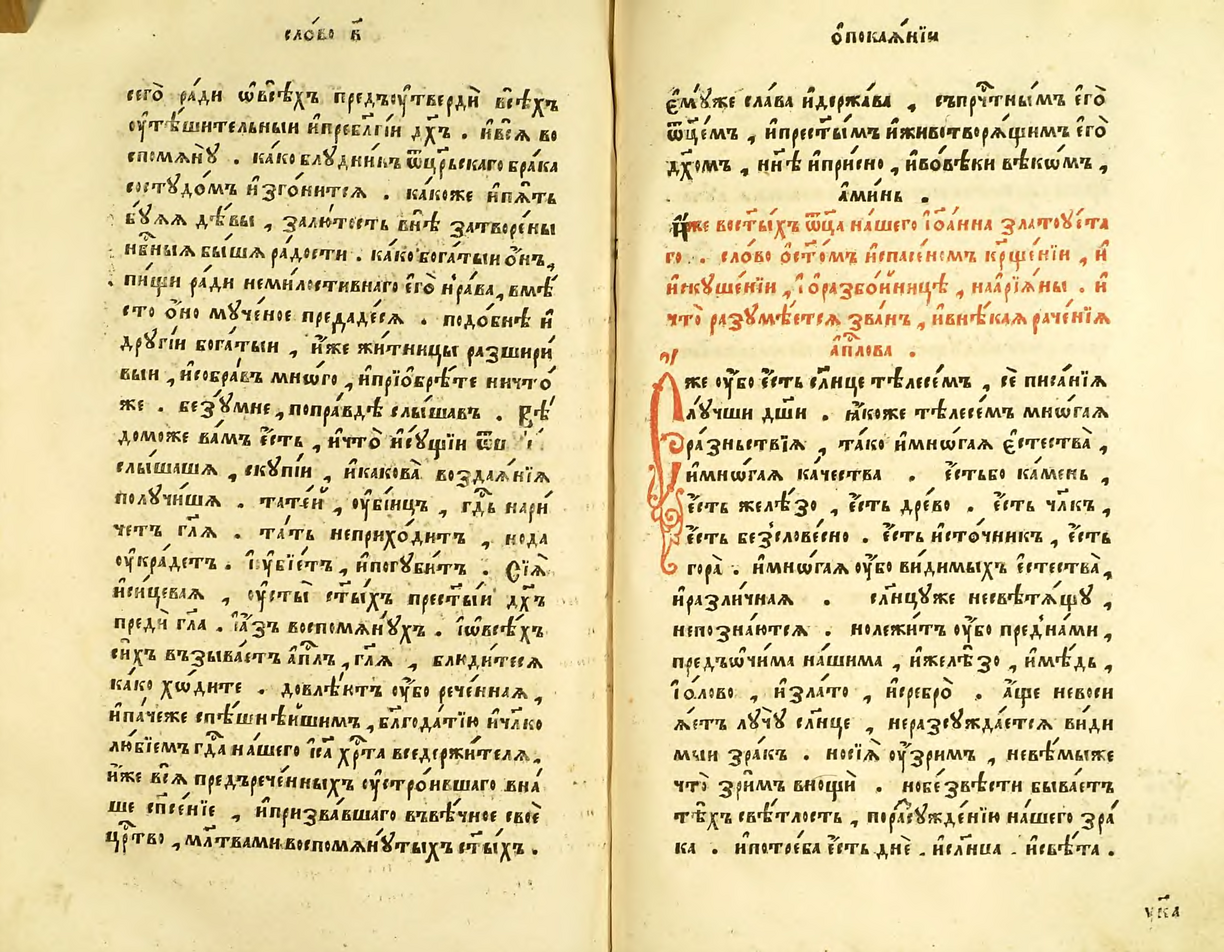 сло́во в҃
сего̀ ра́ди ѿвсѣ́хъ предъꙋ҆твердѝ всѣ́хъ
ᲂу҆тѣ́шительныи и҆пребл҃гі́и дх҃ъ . и҆всѧ̀ во
спомѧнꙋ̀ . ка́ко блꙋдни́къ ѿцр҃ьскаго бра́ка
состꙋдо́мъ и҆зго́нитсѧ . ка́коже и҆пѧ́ть
бꙋ́ѧѧ дѣ́вы , залю́тость внѣ̀ затворе́ны
нб҃ныѧ бы́шѧ ра́дости . ка́ко бога́тыи ѻ҆́нъ ,
пи́щи ра́ди неми́лостивнаго є҆го̀ нра́ва , вмѣ́
сто ѻ҆но̀ мꙋче́ное преда́десѧ . подо́бнѣ и҆
дрꙋгі́и бога́тыи , и҆́же жи́тницы разшири́
выи , и҆собра́въ мно́го , и҆прїѡбрѣ́те ничто́
же . безꙋ́мне , попра́вдѣ слы́шавъ . Вѣ́
доможе ва́мъ є҆́сть , и҆что̀ и҆сꙋ́щїи
слы́шашѧ , скꙋпі́и , и҆какова̀ воздаѧ́нїѧ
полꙋчи́шѧ . тате́й , ᲂу҆бі́ицъ , гд҃ь нари
че́тъ гл҃ѧ . та́ть неприхо́дитъ , нода
ᲂу҆кра́детъ . і҆ᲂу҆бїе́тъ , и҆погꙋби́тъ . Сїѧ̀
и҆сицева́ѧ , ᲂу҆сты̀ ст҃ы́хъ прест҃ы́и дх҃ъ
предѝ гл҃а . і҆а҆́зъ воспомѧнꙋ́хъ . і҆ѿвсѣ́хъ
си́хъ възыва́етъ а҆пⷭ҇лъ , гл҃ѧ , блюди́тесѧ
ка́ко хо́дите . довлѣ́ютъ ᲂу҆̀бо рече́ннаѧ ,
и҆па́чеже спѣшнѣ́йшимъ , благода́тїю и҆чл҃ко
лю́бїемъ гд҃а на́шего і҆с҃а хрⷭ҇та̀ вседержи́телѧ ,
и҆́же всѧ̀ предърече́нныхъ ᲂу҆стро́ившаго вна́
ше сп҃се́нїе , и҆призва́вшаго въвѣ́чное своѐ
црⷭ҇тво , мл҃твами воспомѧнꙋ́тыхъ ст҃ы́хъ .
ѻ҆покаѧ́нїи
є҆мꙋ́же сла́ва и҆держа́ва , съпрⷭ҇тнымъ є҆го̀
ѿц҃е́мъ , и҆прест҃ы́мъ и҆животворѧ́щимъ є҆го̀
дх҃омъ , ны́нѣ и҆при́сно , и҆вовѣ́ки вѣко́мъ ,
а҆ми́нь .
И҆́же вост҃ы́хъ ѿц҃а на́шего і҆ѡа́нна златоꙋ́ста
го . сло́во ѻ҆ст҃о́мъ и҆спасе́номъ крⷭ҇ще́нїи , и҆
и҆скꙋше́нїи , і҆ѻразбо́йницѣ , наарїѧ́ны . и҆
что̀ разꙋмѣ́етсѧ зва́нъ , и҆внѣ́каѧ раче́нїѧ
а҆пⷭ҇лова .
Ꙗ҆́же ᲂу҆́бо є҆́сть сл҃нце тѣлесе́мъ , сѐ писа́нїѧ
лꙋ́чши дш҃и . ꙗ҆́коже тѣлесе́мъ мно́гаѧ
ра́зньствїѧ , та́ко и҆мно́гаѧ є҆стества̀ ,
и҆мно́гаѧ ка́чества . є҆́стьбо ка́мень ,
є҆́сть желѣ́зо , є҆́сть дре́во . є҆́сть чл҃къ ,
є҆́сть безслове́сно . є҆́сть и҆сто́чникъ , є҆́сть
гора̀ . и҆мно́гаѧ ᲂу҆́бо ви́димыхъ є҆стества̀ ,
и҆разли́чнаѧ . сл҃нцꙋже несвѣтѧ́щꙋ ,
непозна́ютсѧ . нолежи́тъ ᲂу҆́бо преднами ,
предъѻчи́ма на́шима , и҆желѣ́зо , и҆мѣ́дь ,
і҆ѻ́лово , и҆зла́то , и҆сребро̀ . а҆́ще невоси
ѧ́етъ лꙋчꙋ̀ сл҃нце , неразсꙋжда́етсѧ ви́ди
мыи зра́къ . носїѧ̀ ᲂу҆́зримъ , невѣ́мыже
что̀ зри́мъ внощѝ . нобезвѣ́сти быва́етъ
тѣ́хъ свѣ́тлость , поразсꙋжде́нїю на́шего зра́
ка . и҆потре́ба є҆́сть днѐ . и҆сл҃нца . и҆свѣ́та .
ука